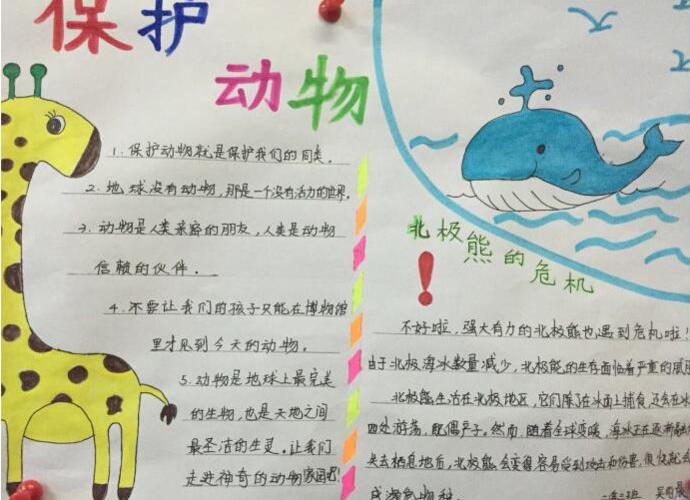 保护
动物
1. 保护动物就是保护我们的同类。
2. 地球没有动物，那是一个没有活力的世界。
3. 动物是人类亲密的朋友，人类是动物
信赖的伙伴。
4. 不要让我们的孩子只能在博物馆
里才见到今天的动物。
5. 动物是地球上最完美
的生物，也是天地之间
最圣洁的生灵。让我们
走进神奇的动物家园吧！
北极熊的危机
！
不好啦，强大有力的北极熊也遇到危机啦！
由于北极海冰数量减少，北极熊的生存面临着严重的威
北极熊生活在北极地区，它们除了在冰面上捕食，还会在冰
四处游荡，配偶产子。然而，随着全球变暖，海冰正在逐渐融
失去栖息地后，北极熊会变得容易受到攻击和伤害，很快就会
成濒危物种。